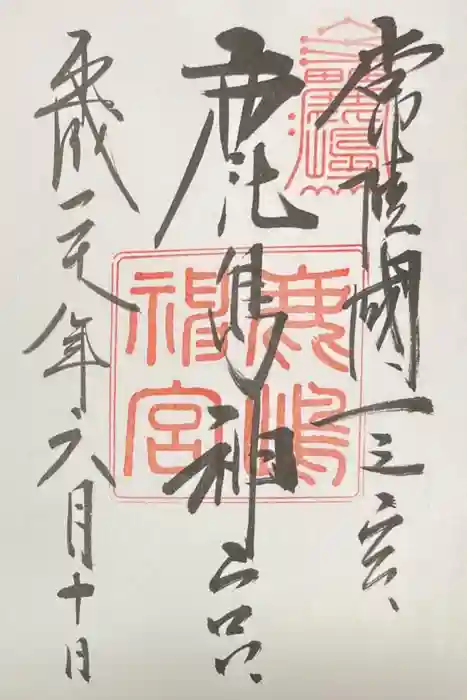 常陸國一之宮
鹿島神宮
平成
年六月十日
鹿嶋
神宮